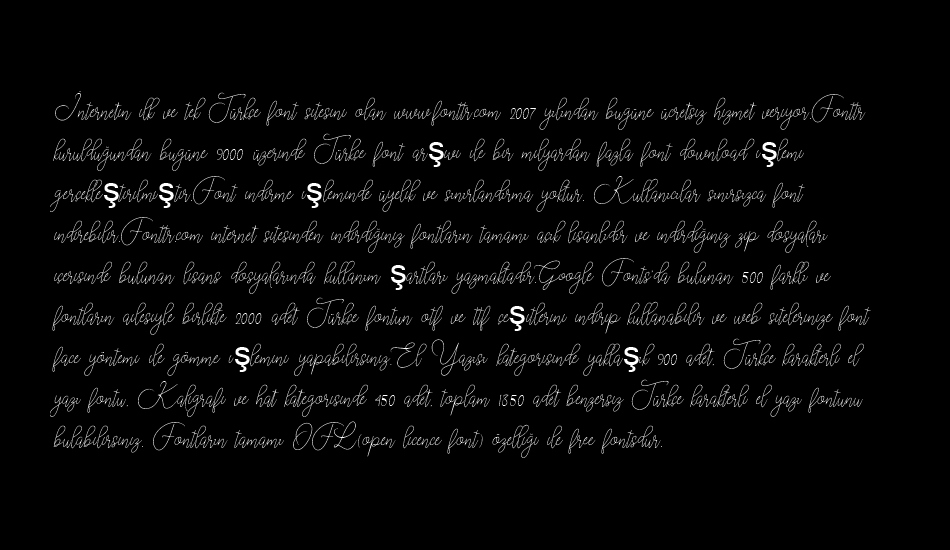 İnternetin ilk ve tek Türkçe font sitesini olan www.fonttr.com 2007 yılından bugüne ücretsiz hizmet veriyor.Fonttr
kurulduğundan bugüne 9000 üzerinde Türkçe font arşivi ile bir milyardan fazla font download işlemi
gerçekleştirilmiştir.Font indirme işleminde üyelik ve sınırlandırma yoktur. Kullanıcılar sınırsızca font
indirebilir.Fonttr.com internet sitesinden indirdiğiniz fontların tamamı açık lisanlıdır ve indirdiğiniz zip dosyaları
içerisinde bulunan lisans dosyalarında kullanım şartları yazmaktadır.Google Fonts'da bulunan 500 farklı ve
fontların ailesiyle birlikte 2000 adet Türkçe fontun otf ve ttf çeşitlerini indirip kullanabilir ve web sitelerinize font
face yöntemi ile gömme işlemini yapabilirsiniz.El Yazısı kategorisinde yaklaşık 900 adet, Türkçe karakterli el
yazı fontu, Kaligrafi ve hat kategorisinde 450 adet, toplam 1350 adet benzersiz Türkçe karakterli el yazı fontunu
bulabilirsiniz. Fontların tamamı OFL(open licence font) özelliği ile free fontsdur.